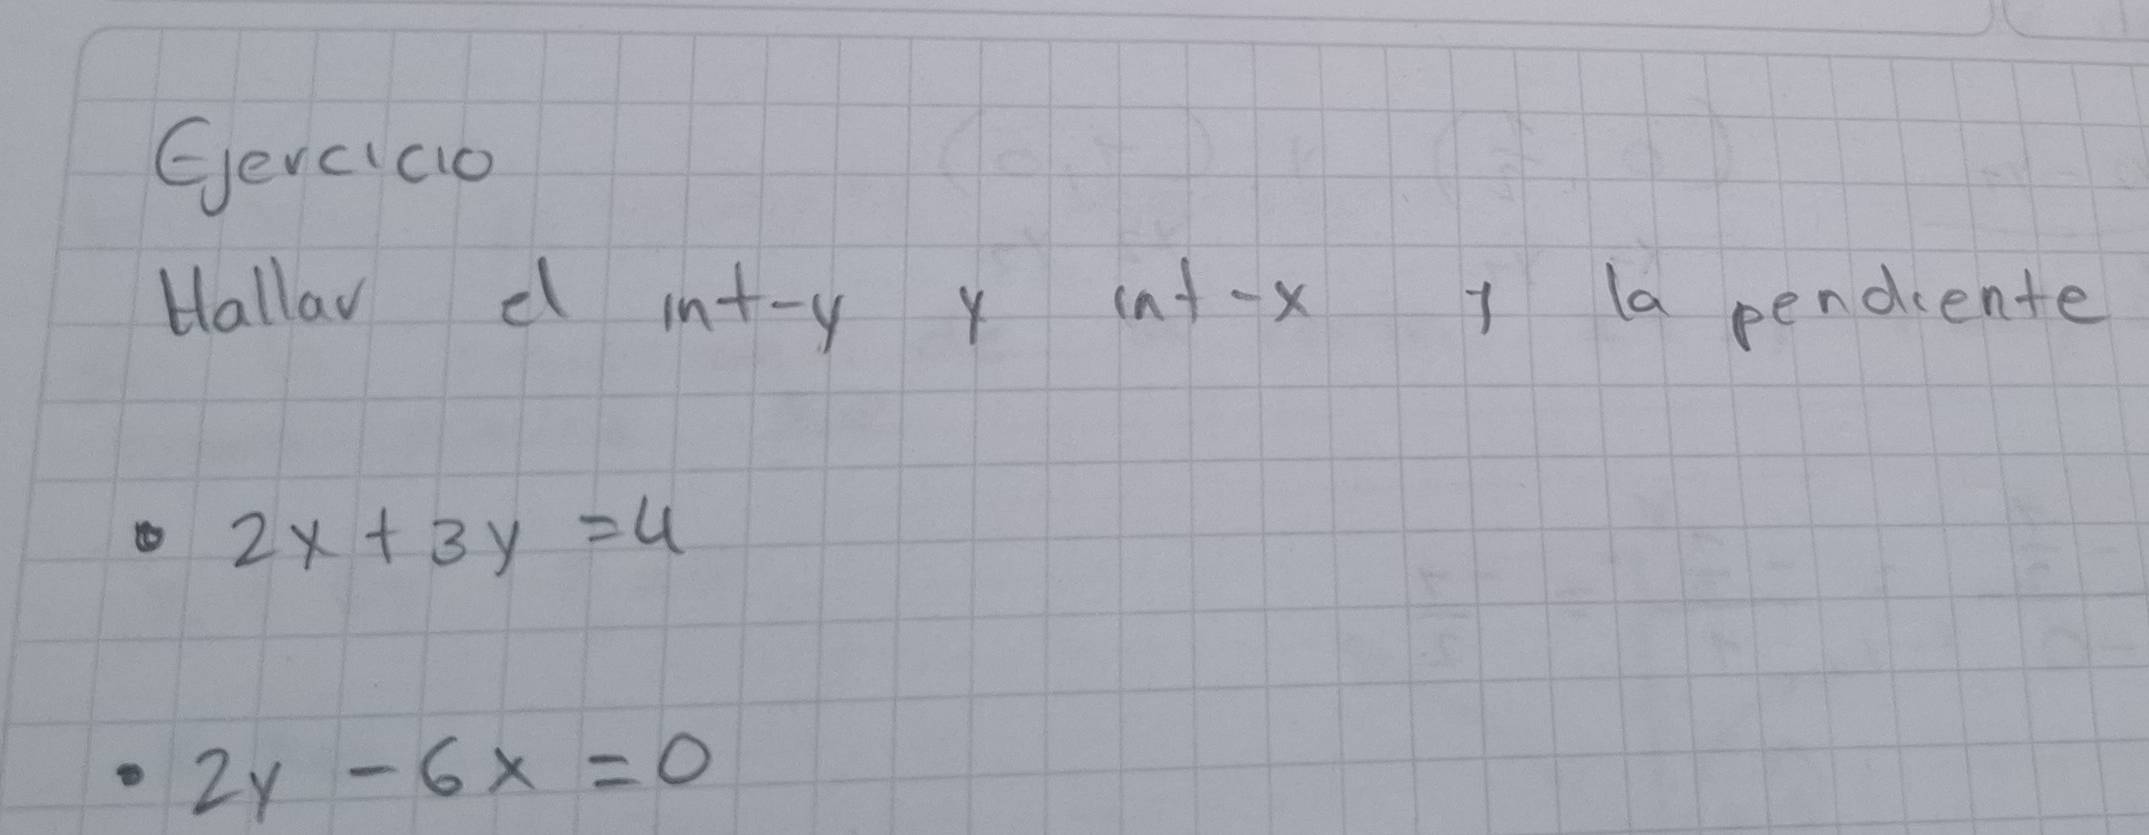 Ejercicio
Hallar el int-y y int-x y la pendiente
• 2x + 3y = 4
• 2y - 6x = 0